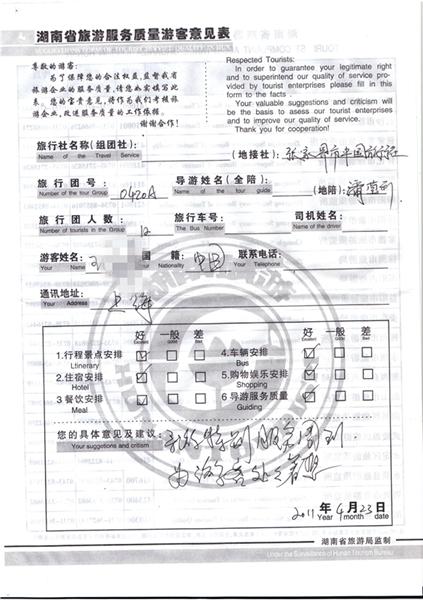 湖南省旅游服务质量游客意见表
SUGGESTIONS FORM OF TOURIST SERVICE QUALITY IN HUNAN
尊敬的游客:
为了保障您的合法权益,监督我省
旅游企业服务质量,请您如实填写此
表。您的宝贵意见,将作为我们考核旅
游企业,改进服务质量的工作依据。
谢谢合作!
Respected Tourists:
In order to guarantee your legitimate right
and to superintend our quality of service pro-
vided by tourist enterprises please fill in this
form to the facts .
Your valuable suggestions and criticism will
be the basis to asess our tourist enterprises
and to improve our quality of service.
Thank you for cooperation!
旅行社名称(组团社):
Name of the Travel Service
(地接社): 张家界市中国旅行社
旅行团号: 0420A
Number of the tour Group
导游姓名(全陪)
Name of the tour guide
(地陪)
旅行团人数: 12
Number of tourists in the Group
旅行车号:
The Bus Number
司机姓名:
Name of the driver
游客姓名:
Your Name
国籍: 中国
Your Nationality
联系电话:
Your Telephone
通讯地址: 上海
Your Address
好 一般 差
Excellent Good Bad
好 一般 差
Excellent Good Bad
1.行程景点安排
Ltinerary
4.车辆安排
Bus
2.住宿安排
Hotel
5.购物娱乐安排
Shopping
3.餐饮安排
Meal
6 导游服务质量
Guiding
您的具体意见及建议:
Your suggetions and critism
服务周到
2011 年 4 月 23 日
Year month date
湖南省旅游局监制
Under the Surveillance of Hunan Tourism Bureau